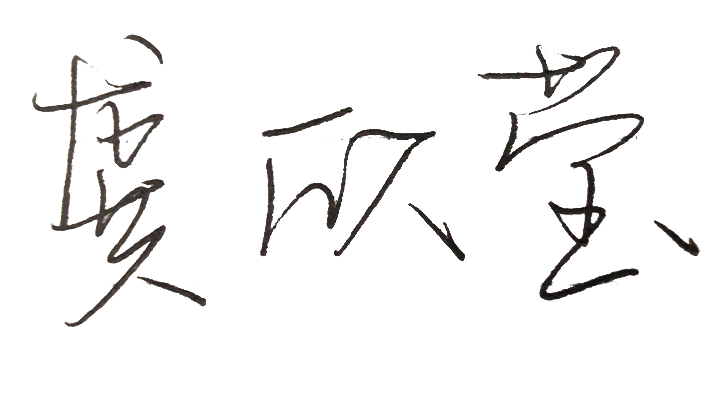 虞欣莹